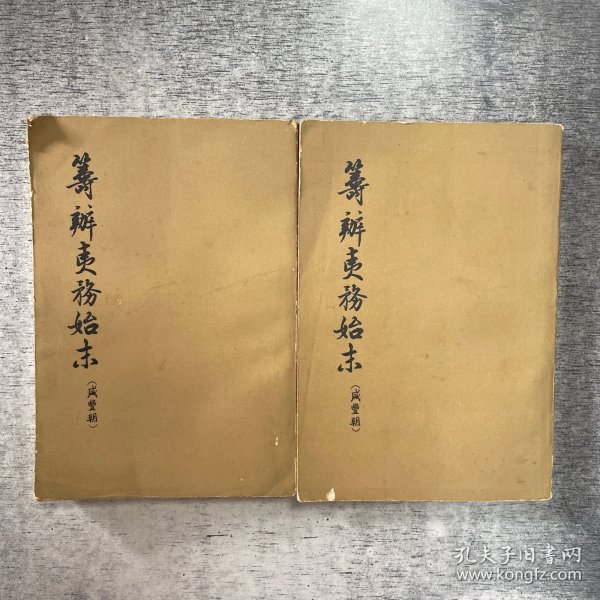 籌辦夷務始末
(咸豐朝)
籌辦夷務始末
(咸豐朝)
孔夫子旧書网
www.kongfz.com